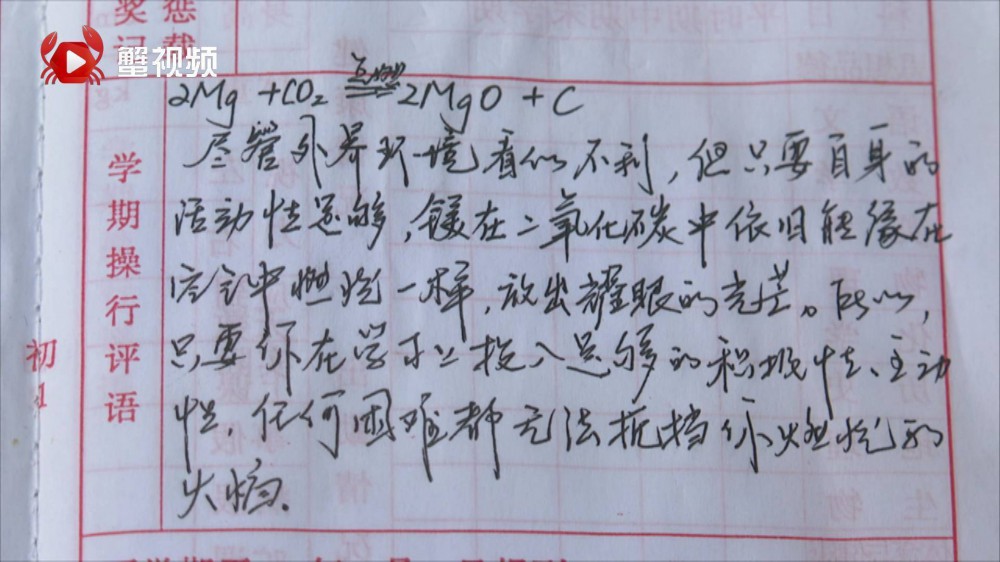 奖惩记载
蟹视频
点燃
2Mg + CO₂ = 2MgO + C
学期操行评语
初1
尽管外界环境看似不利，但只要自身的
活动性足够，镁在二氧化碳中依旧能像在
空气中燃烧一样，放出耀眼的光芒。所以，
只要你在学习上投入足够的积极性、主动
性，任何困难都无法抵挡你燃烧的
火焰.